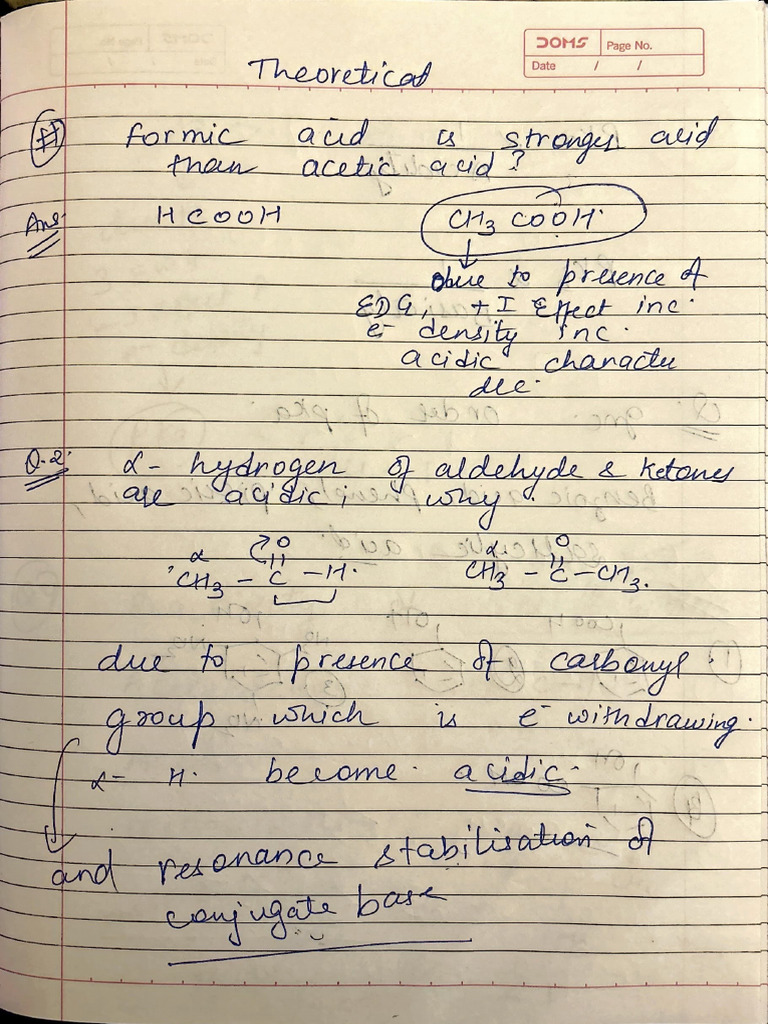 DOMS Page No.
Date / /
Theoretical
# formic acid is stronger acid
than acetic acid?
Ans: HCOOH CH3 COOH
due to presence of
EDG, +I Effect inc.
e- density inc.
acidic character
dec.
Q.2: α- hydrogen of aldehyde & ketones
are acidic, why.
α O α O
CH3 - C - H. CH3 - C - CH3.
due to presence of carbonyl
group which is e- withdrawing.
α- H. become acidic.
and resonance stabilisation of
conjugate base